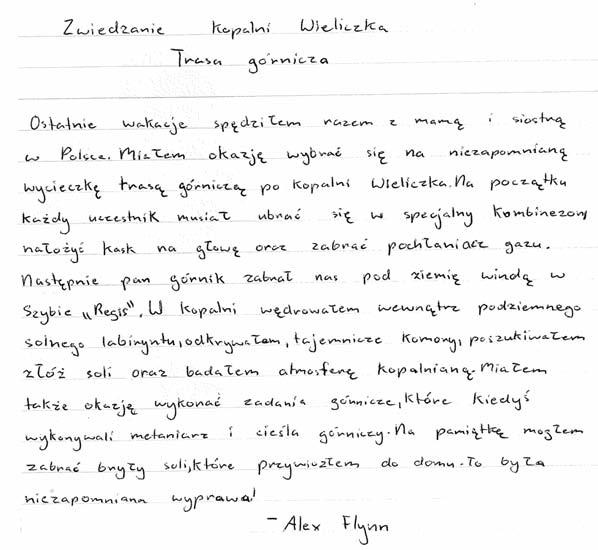 Zwiedzanie Kopalni Wieliczka
Trasa górnicza
Ostatnie wakacje spędziłem razem z mamą i siostrą
w Polsce. Miałem okazję wybrać się na niezapomnianą
wycieczkę trasą górniczą po kopalni Wieliczka. Na początku
każdy uczestnik musiał ubrać się w specjalny kombinezon,
nałożyć kask na głowę oraz zabrać pochłaniacz gazu.
Następnie pan górnik zabrał nas pod ziemię windą w
Szybie „Regis”. W kopalni wędrowałem wewnątrz podziemnego
solnego labiryntu, odkrywałem, tajemnicze komory, poszukiwałem
złóż soli oraz badałem atmosferę kopalnianą. Miałem
także okazję wykonać zadania górnicze, które kiedyś
wykonywali metaniarz i cieśla górniczy. Na pamiątkę mogłem
zabrać bryły soli, które przywiozłem do domu. To była
niezapomniana wyprawa!
- Alex Flynn